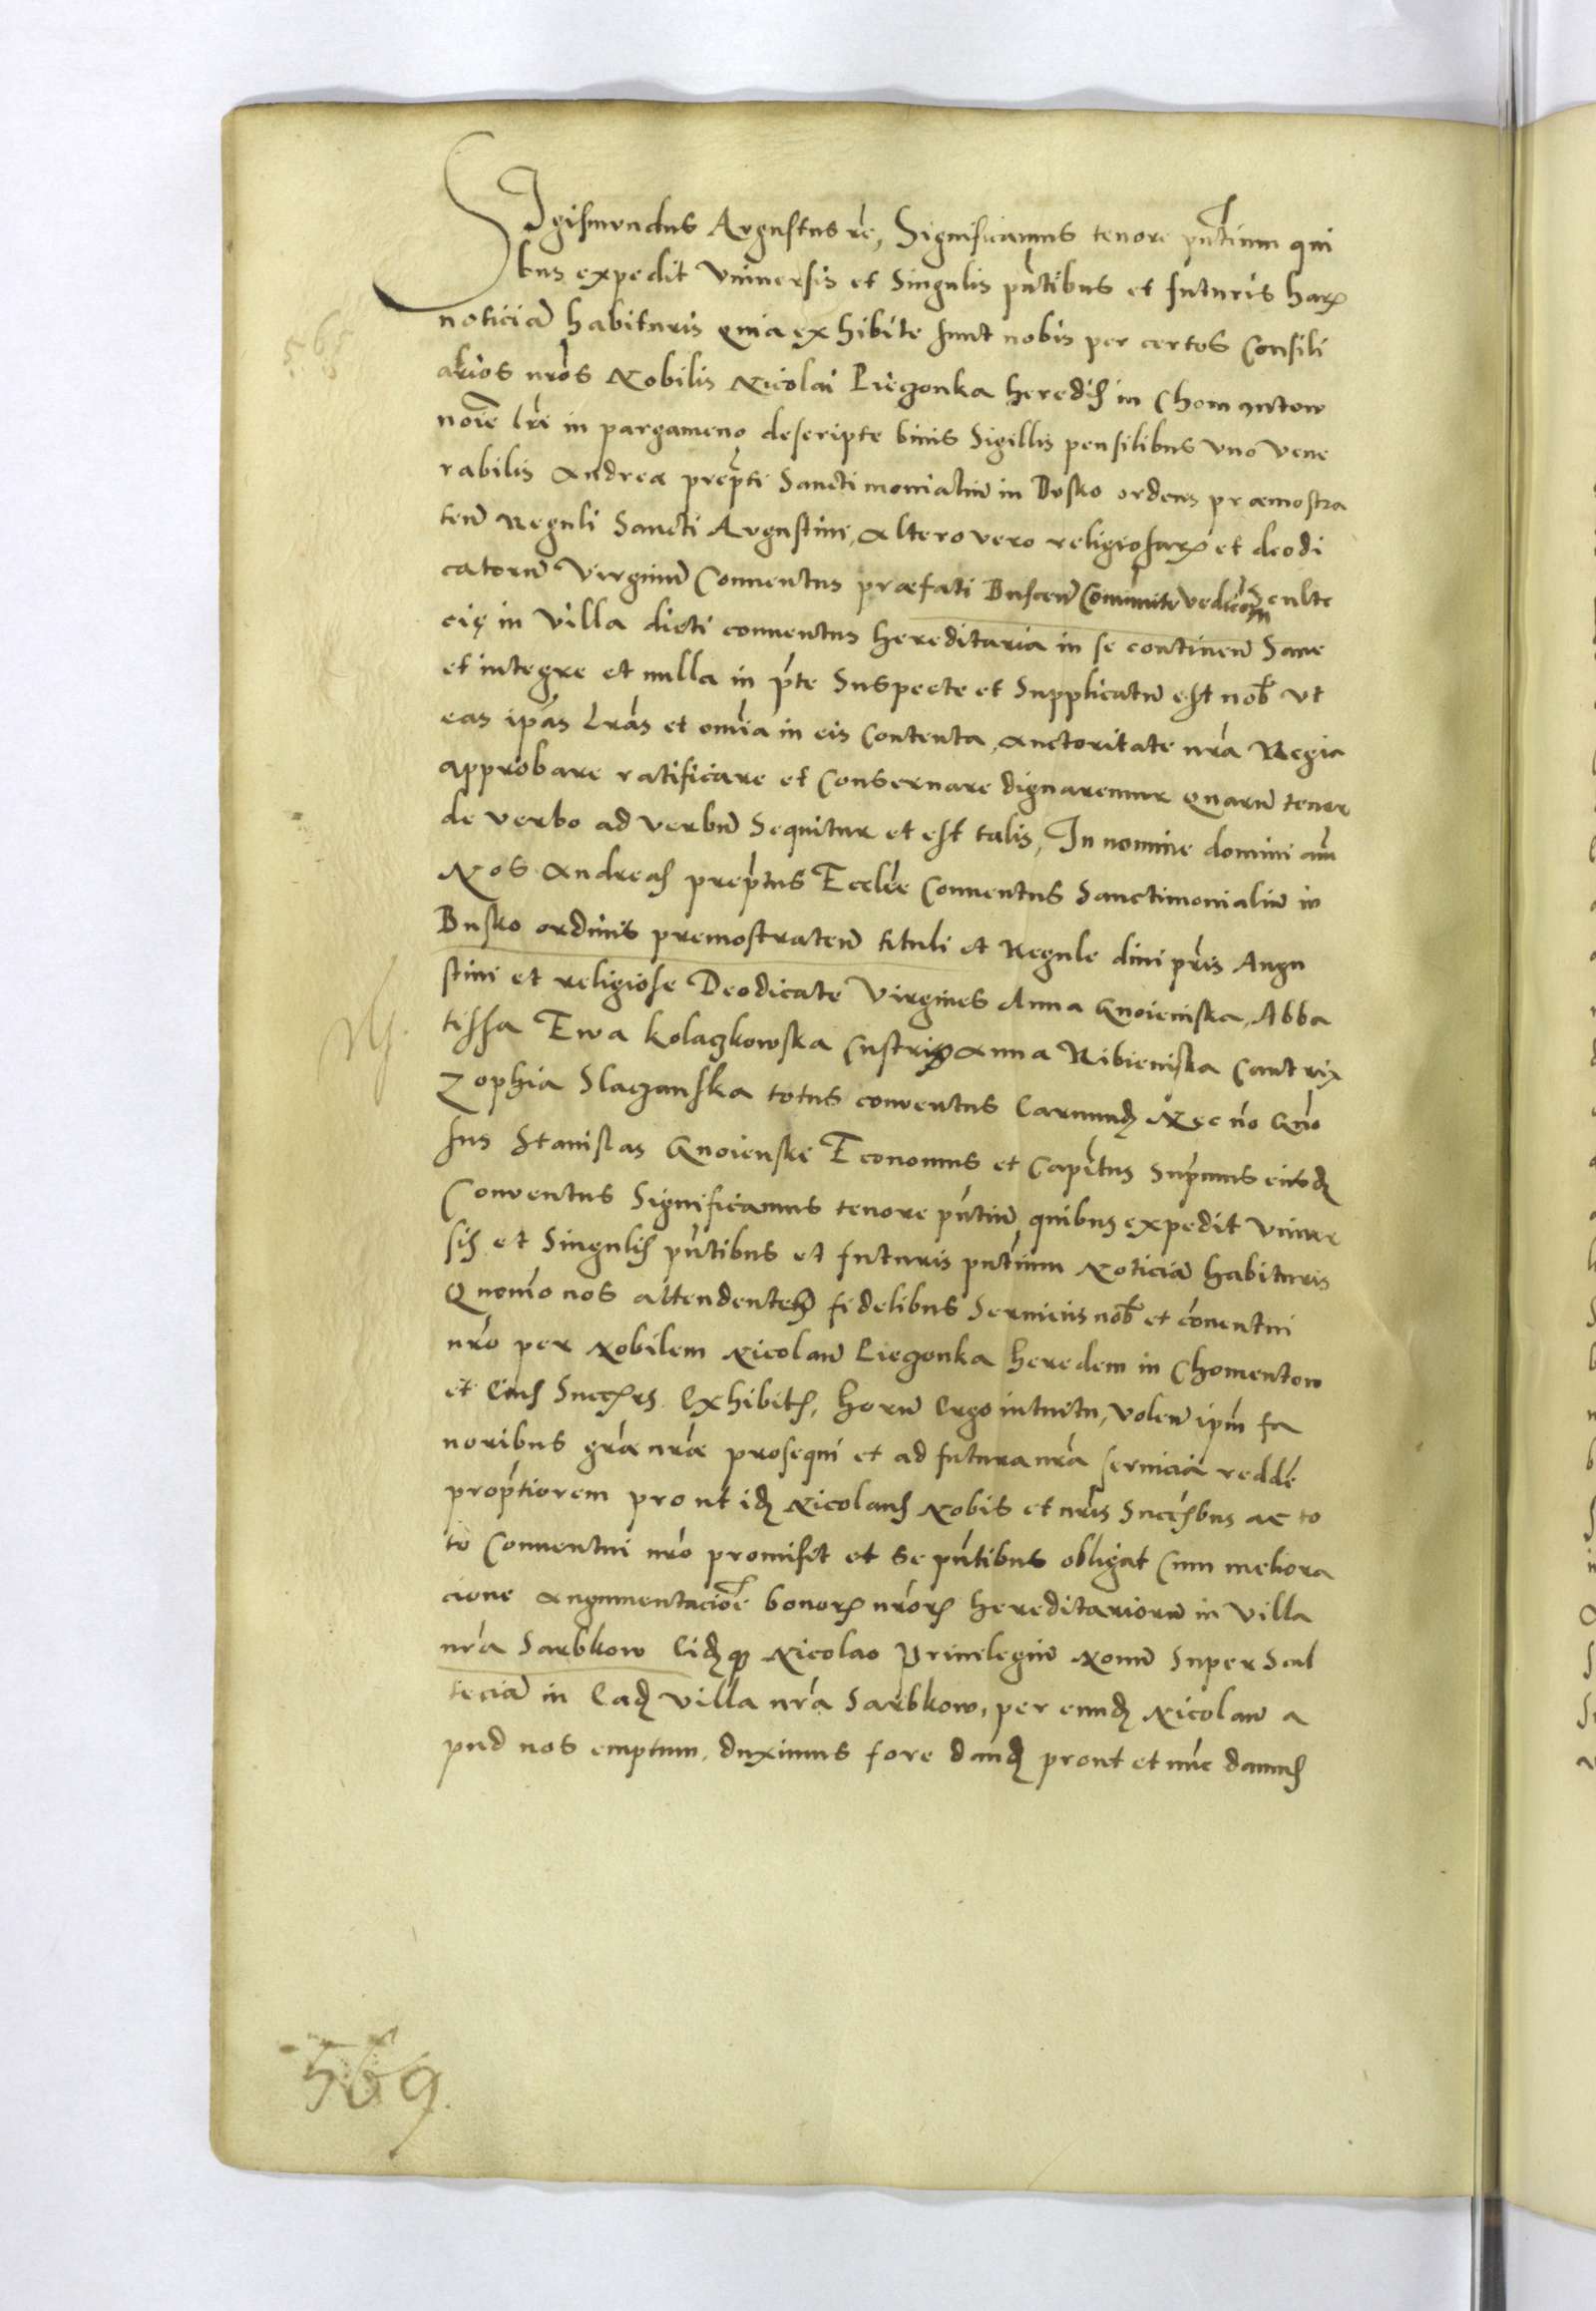 Sigismundus Augustus rc̃, Significamus tenore pñtium qui
bus expedit Vniuersis et Singulis pñtibus et futuris harꝝ
noticiã habituris Quia exhibite sunt nobis per certos Consili
565
arios nr̃os Nobilis Nicolai Piegonka heredis in Chomentow
noĩe lr̃e in pargameno descripte binis Sigillis pensilibus vno Vene
rabilis Andreæ prep̃ti Sanctimonialiũ in Busko ordens præmostra
teñ Reguli Sancti Augustini, Altero vero religiosarꝝ et deodi
catorũ Virginũ Conuentus præfati Busceñ Com̃unite vẽdicõẽm Scultc
cię in Villa dicti conuentus hereditaria in se contineñ Sane
et integre et nulla in p̃te Suspecte et Supplicatũ est nob̃ vt
eas ip̃as Lr̃as et om̃ia in eis Contenta, Auctoritate nr̃a Regia
approbare ratificare et Conseruare dignaremur Quarũ tenor
de verbo ad verbũ Sequitur et est talis, In nomine domini am̃
Nos Andreas prep̃tus Eccl̃ie Conuentus Sanctimonialiũ in
Busko ordinis premostrateñ tituli et Regule diui pr̃is Augu
stini et religiose Deodicate Virgines Anna Gnoienska, Abba
tissa Ewa Kolaczkowska Custrix Anna Ribienska Cantrix
Zophia Slaczanska totus conventus Earumdꝫ Nec nõ Gño
sus Stanislas Gnoienski Economus et Capit̃us Supmus eiusdꝫ
Conventus Significamus tenore pñtiũ quibus expedit Vniuer
sis et Singulis pñtibus et futuris pñtium Noticiã habituris
Quom̃o nos attendenteß fidelibus Seruiciis nob̃ et cõuentui
nr̃o per Nobilem Nicolaũ Piegonka heredem in Chomentow
et Eius Succ̃rs Exhibitis, horũ Ergo intuitu, voleñ ip̃m fa
uoribus gr̃æ nr̃æ prosequi et ad futura nr̃a seruicia redd̃e
prop̃tiorem prout idꝫ Nicolaus Nobis et nr̃is Succ̃sbus ac to
to Conuentui nr̃o promisit et se pñtibus obligat Cum meliora
cione Augumentaciõe bonorꝝ nr̃orꝝ hereditariorũ in Villa
nr̃a Sarbkow Eidꝫqꝫ Nicolao Priuilegiũ Nouũ Super Scul
teciã in Eadꝫ villa nr̃a Sarbkow, per eundꝫ Nicolaũ a
pud nos emptum, duximus fore dandꝫ prout et nũc damus
569.